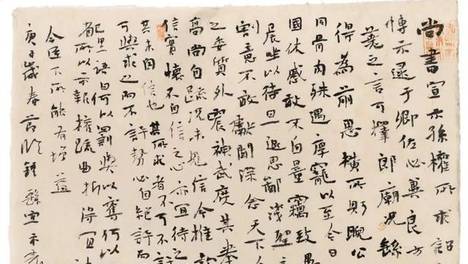 尚書宣示孫權所求詔
博示逮于卿佐必冀良方
蕘之言可擇郎廟況繇
得為前恩橫所盼睨公
同骨肉殊遇厚寵以至今日
國休戚敢不自量竊致愚
晨坐以待旦退思鄙淺聖
割意不敢獻聞深念天下
之委質外震神武度其拳
高尚自疏況未見信今推款
信實懷不自信之心亦宜待之
其未自信也其所求者不可不
可與求之而不許勢必自絕許而
己里語曰何以罰與以奪何以
省所示報權疏曲折得宜
今臣下所能有增益
歲春節臨鍾繇宣示表